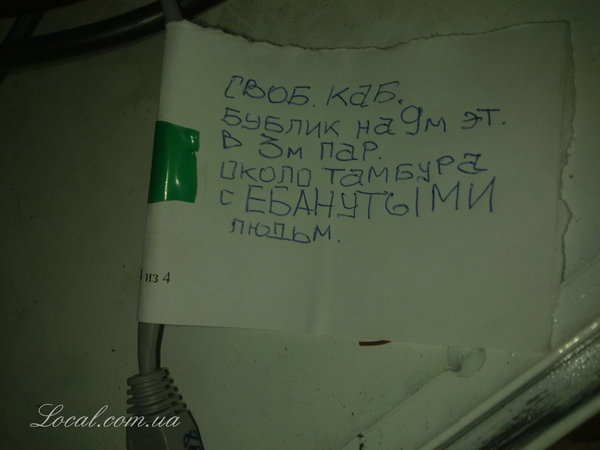 СВОБ. КАБ.
БУБЛИК на 9м эт.
В 3м ПАР.
ОКОЛО ТАМБУРА
с ЕБАНУТЫМИ
людьм.
из 4
Local.com.ua